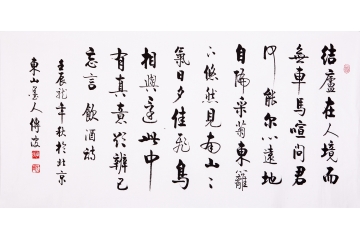 結廬在人境而
無車馬喧問君
何能尔心遠地
自偏采菊東籬
下悠然見南山々
氣日夕佳飛鳥
相與還此中
有真意欲辨已
忘言飲酒詩
壬辰龍年秋於北京
東山墨人傅